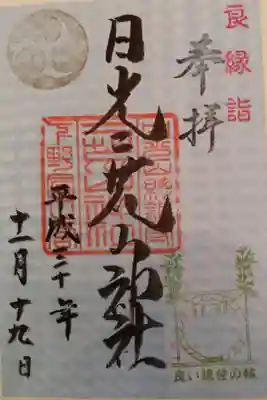 良縁詣
奉拝
日光二荒山神社
平成三十年
十一月十九日
下野
良い縁
の輪